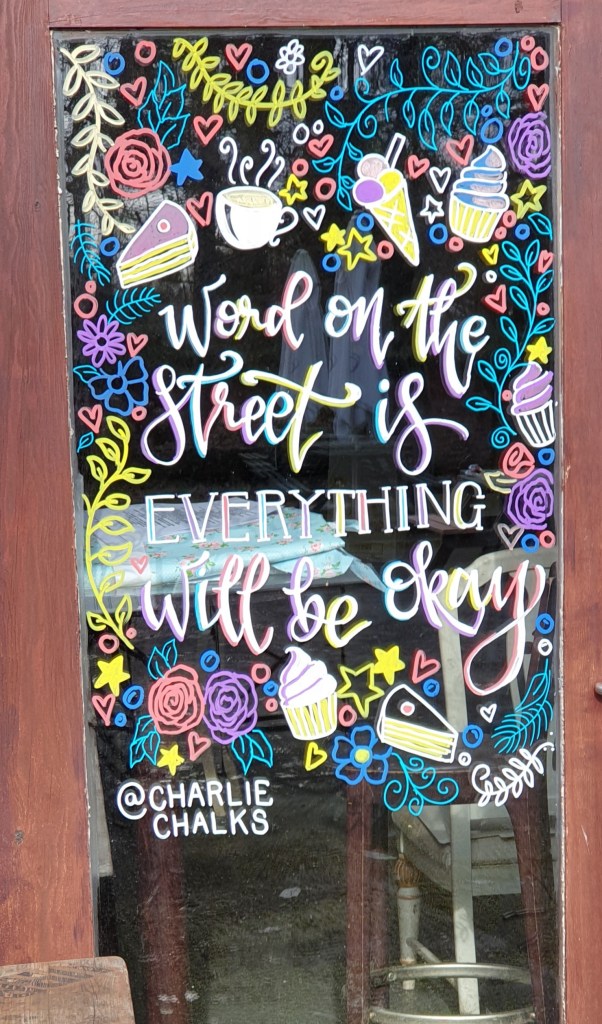 word on the
street is
EVERYTHING
will be okay
@CHARLIE
CHALKS